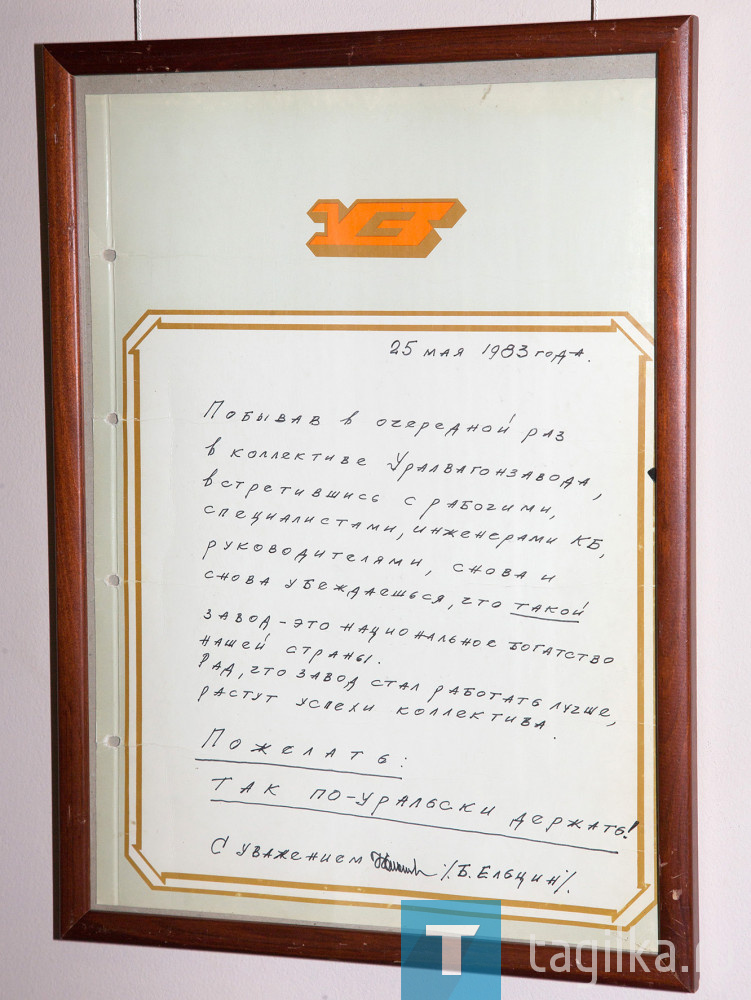 УВЗ
25 мая 1983 года.
Побывав в очередной раз
в коллективе Уралвагонзавода,
встретившись с рабочими,
специалистами, инженерами КБ,
руководителями, снова и
снова убеждаешься, что такой
завод - это национальное богатство
нашей страны.
Рад, что завод стал работать лучше,
растут успехи коллектива.
Пожелать:
так по-уральски держать!
С уважением /Б. Ельцин/.
T tagilka.